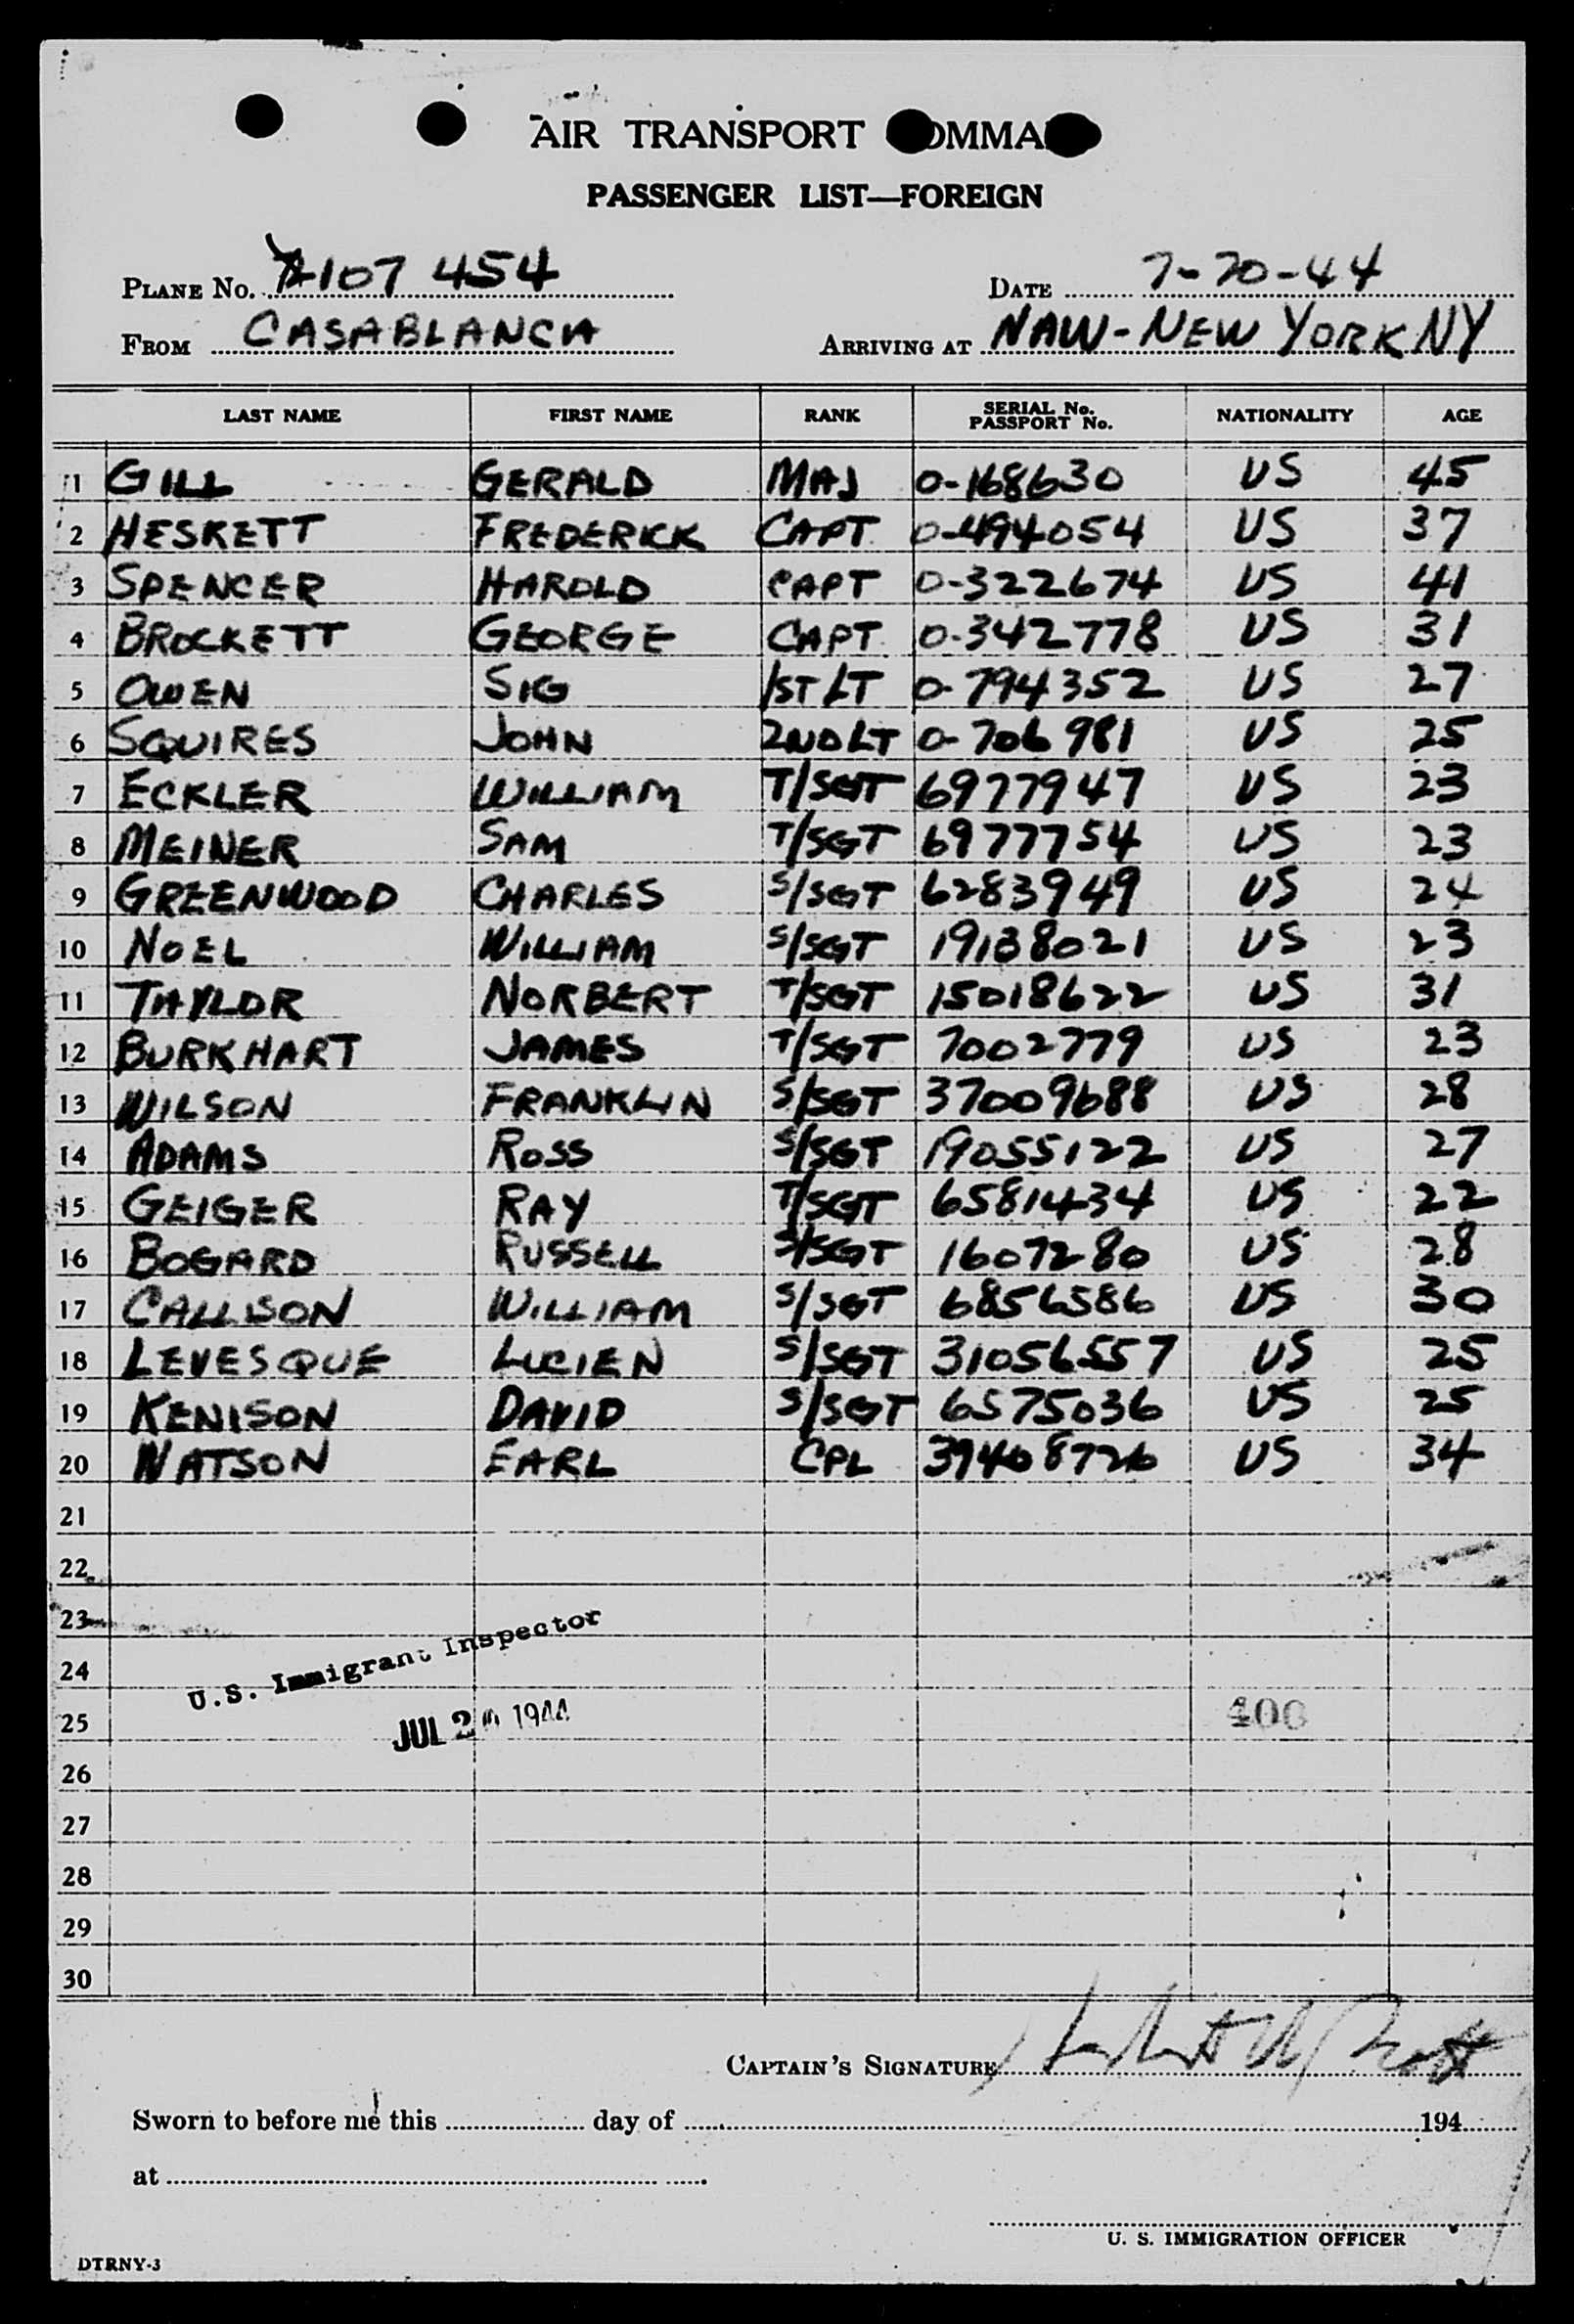 AIR TRANSPORT COMMA
PASSENGER LIST—FOREIGN
PLANE No. 107 454 DATE 7-20-44
FROM CASABLANCA ARRIVING AT NAW-NEW YORK NY
LAST NAME FIRST NAME RANK SERIAL No. PASSPORT No. NATIONALITY AGE
1 GILL GERALD MAJ 0-168630 US 45
2 HESKETT FREDERICK CAPT. 0-494054 US 37
3 SPENCER HAROLD CAPT 0-322674 US 41
4 BROCKETT GEORGE CAPT. 0-342778 US 31
5 OWEN SIG 1ST LT 0-794352 US 27
6 SQUIRES JOHN 2ND LT 0-706981 US 25
7 ECKLER WILLIAM T/SGT 6977947 US 23
8 MEINER SAM T/SGT 6977754 US 23
9 GREENWOOD CHARLES S/SGT 6283949 US 24
10 NOEL WILLIAM S/SGT 19138021 US 23
11 TAYLOR NORBERT T/SGT 15018622 US 31
12 BURKHART JAMES T/SGT 7002779 US 23
13 WILSON FRANKLIN S/SGT 37009688 US 28
14 ADAMS ROSS S/SGT 19055122 US 27
15 GEIGER RAY T/SGT 6581434 US 22
16 BOGARD RUSSELL S/SGT 1607280 US 28
17 CALLISON WILLIAM S/SGT 6856586 US 30
18 LEVESQUE LUCIEN S/SGT 31056557 US 25
19 KENISON DAVID S/SGT 6575036 US 25
20 WATSON EARL CPL 39408726 US 34
21
22
23
24
U.S. Immigrant Inspector
25 JUL 20 1944
26
27
28
29
30
CAPTAIN'S SIGNATURE
Sworn to before me this day of 194
at
U. S. IMMIGRATION OFFICER
DTRNY-3